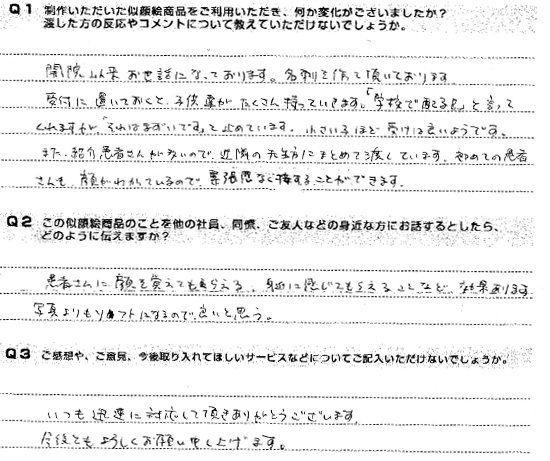 Q1 制作いただいた似顔絵商品をご利用いただき、何か変化がございましたか？
渡した方の反応やコメントについて教えていただけないでしょうか。
開院以来お世話になっております。名刺を作って頂いております
受付に置いておくと、子供達がたくさん持っていきます。「学校で配るの」と言って
くれますが「それはまずいです」と止めています。小さい子ほど受けは良いようです。
また、紹介患者さんが多いので、近隣の先生方にまとめて渡しています。初めての患者
さんも、顔がわかっているので、緊張感なく接することができます。
Q2 この似顔絵商品のことを他の社員、同僚、ご友人などの身近な方にお話するとしたら、
どのように伝えますか？
患者さんに顔を覚えてもらえる、身近に感じてもらえることなど、効果あります
写真よりもソフトになるので良いと思う。
Q3 ご感想や、ご意見、今後取り入れてほしいサービスなどについてご記入いただけないでしょうか。
いつも迅速に対応して頂きありがとうございます。
今後ともよろしくお願い申し上げます。